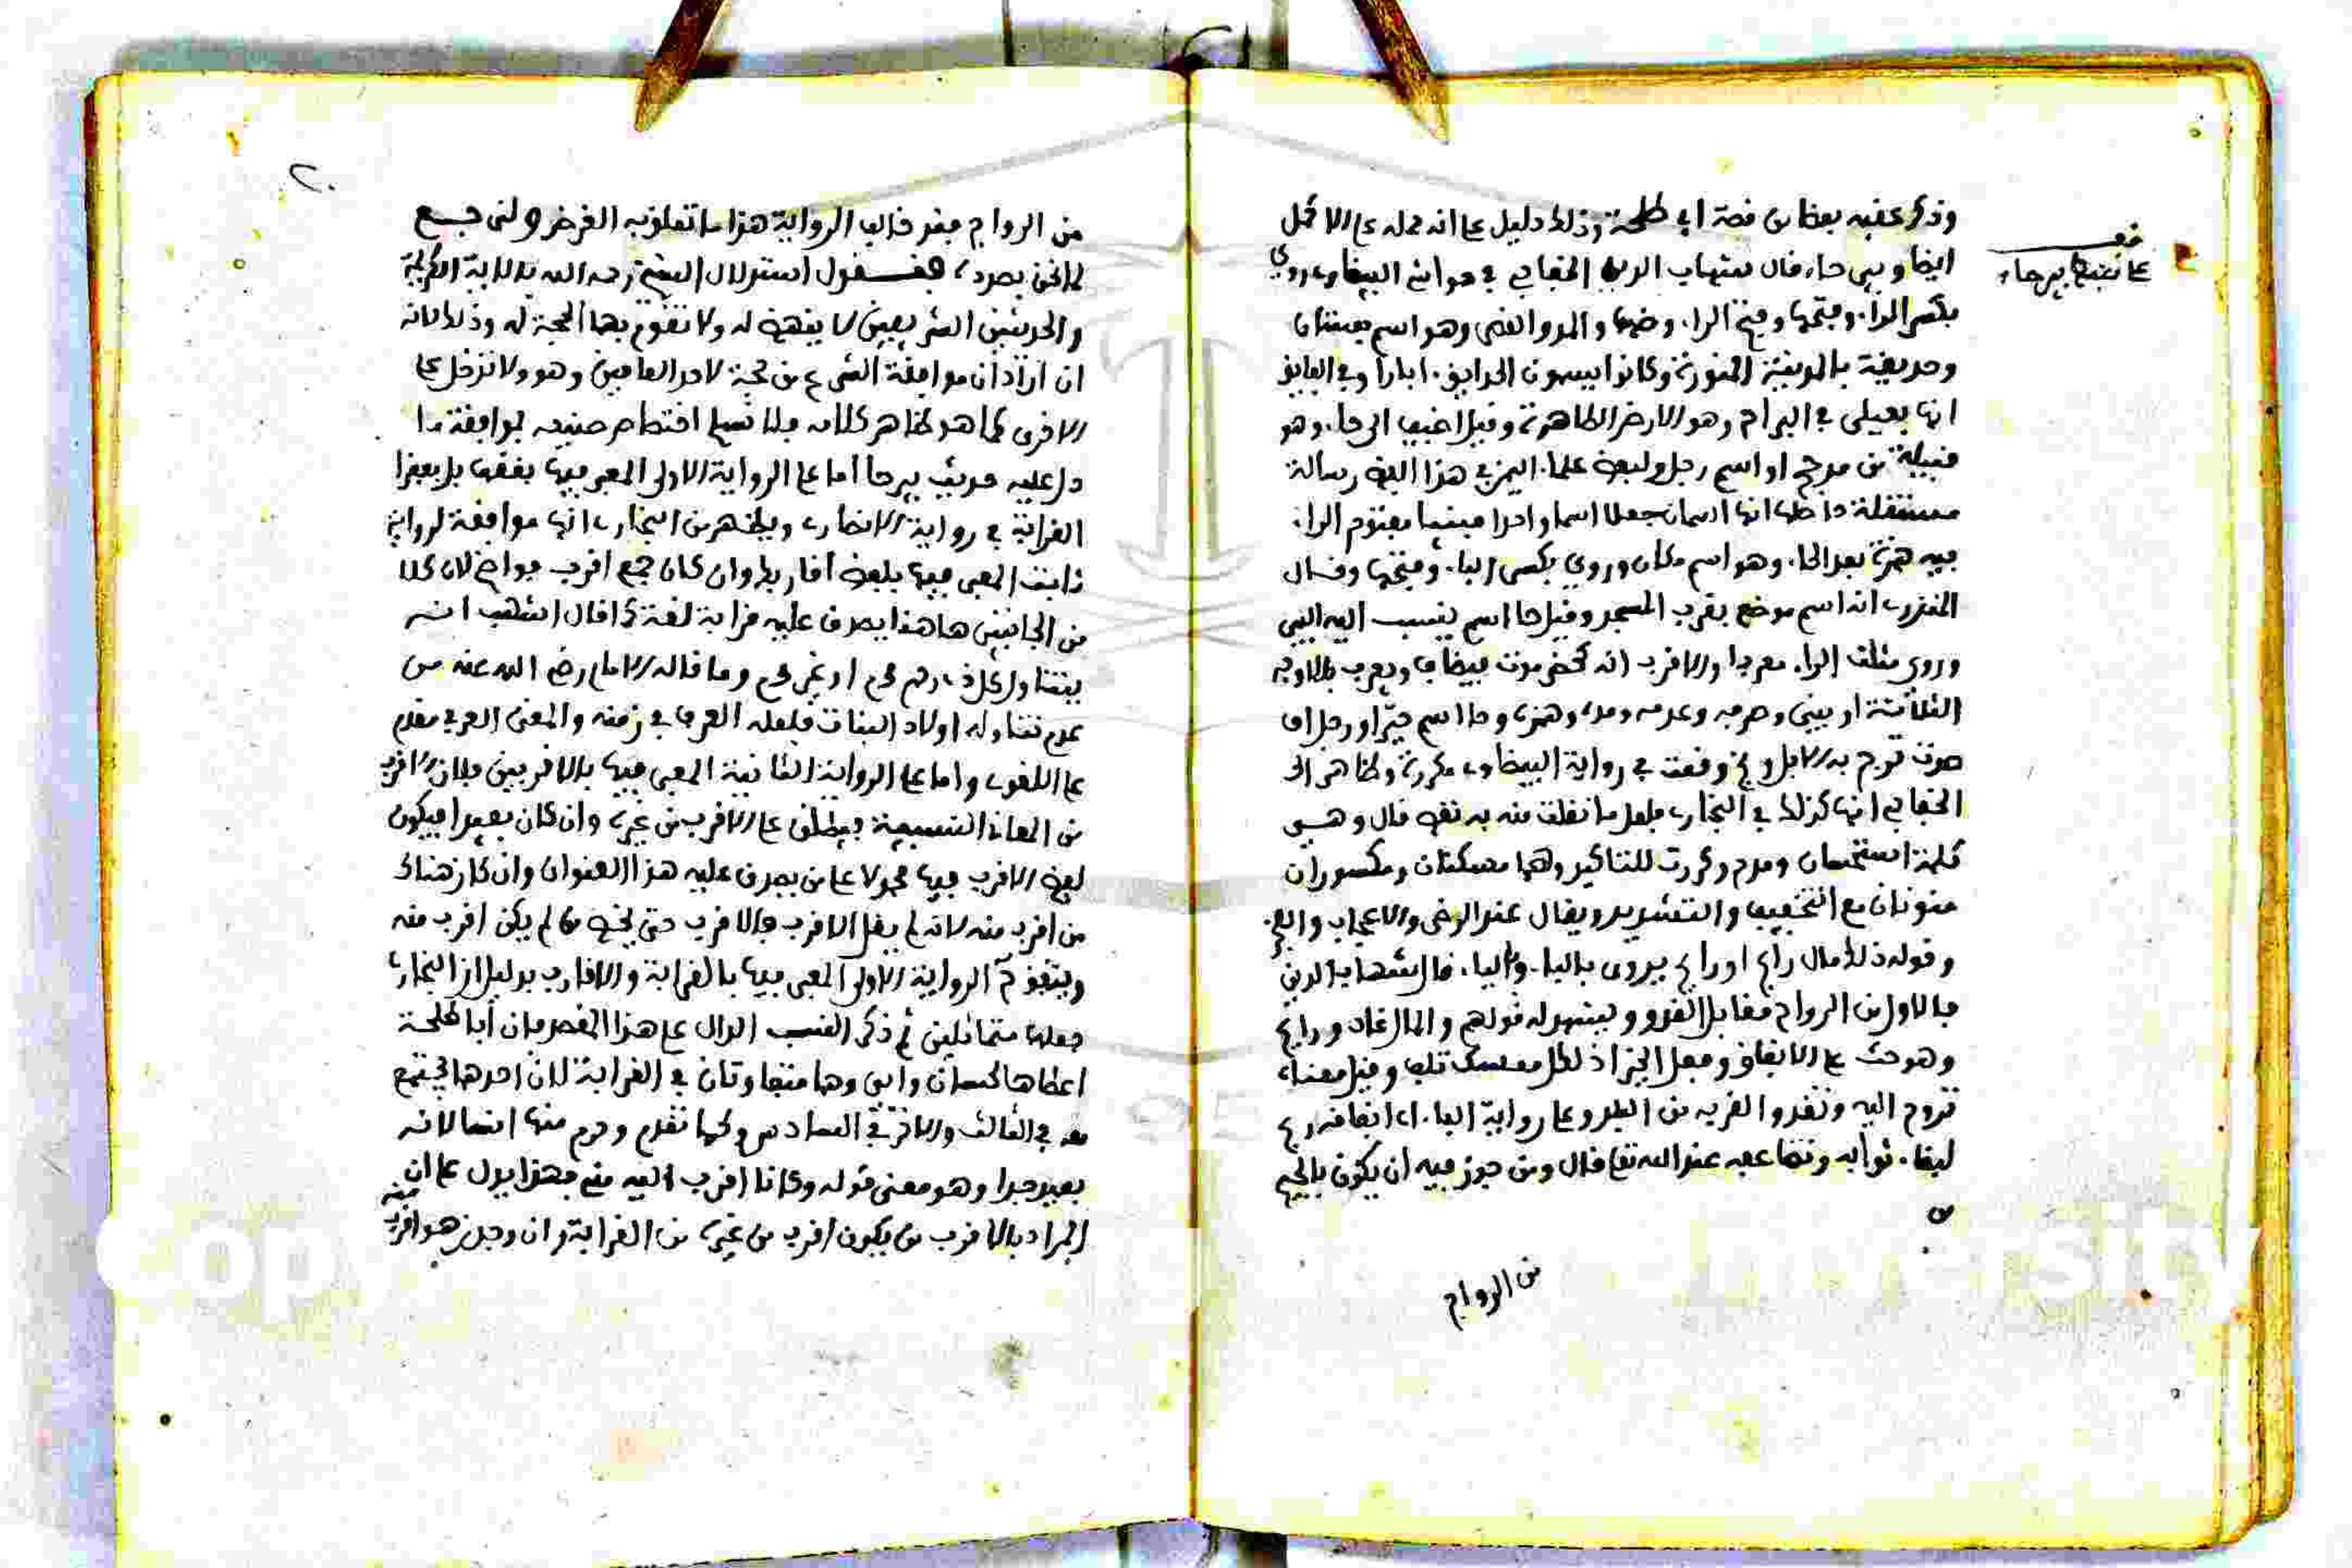 وذكر عقبه بعضا من قصة ابي طلحة وذلك دليل على انه حمله على الاكمل
ايضا وبيرحاء قال شهاب الدين الخفاجي في حواشي البيضاوي روي
بكسر الراء وفتحها وفتح الراء وضمها والمد والقصر وهو اسم بستان
وحديقة بالمدينة المنورة وكانوا يسمون الحدايق ابارا وفي الفايق
انها فيعلى في البراح وهو الارض الظاهرة وقيل اضيف الى حاء وهو
قبيلة من مذحج او اسم رجل ولبعض علماء اليمن في هذا اللفظ رسالة
مستقلة حاصلها انها اسمان جعلا اسما واحدا مبنيا مفتوح الراء
فيه همزة بعد الحاء وهو اسم مكان وروي بكسر الباء وفتحها وقال
المنذري انه اسم موضع بقرب المسجد وقيل حا اسم ينسب اليه البير
وروي مثلث الراء معربا والاقرب انه كحضرموت فيضاف ويعرب بالاوجه
الثلاثة او يبنى وصرفه وعدمه ومده وهمزه وحا اسم حي او رجل او
صوت تزجر به الابل وبخ وقعت في رواية البيضاوي مكررة وظاهر
الخفاجي انها كذلك في البخاري ولعل ما نقلت منه به نقص قال وهي
كلمة استحسان ومدح وكررت للتاكيد وهما مسكنتان ومكسوران
منونان مع التخفيف والتشديد ويقال عند الرضى والاعجاب والفخر
وقوله ذلك مال رابح او رايح يروى بالباء والياء قال شهاب الدين
فالاول من الرواح مقابل الغدو ويشهد له قولهم والمال غاد ورايح
وهو حث على الانفاق وفعل الخير اذ لكل ممسك تلفا وقيل معناه
تروح اليه وتغدوا لقربه من البلد وعلى رواية الباء اي انفاقه رابح
لبقاء ثوابه وتضاعفه عند الله تعالى قال ومن جوز فيه ان يكون بالجيم
من الرواج
على ضبط بيرحاء
٢٠
من الرواج فقد خالف الرواية هذا ما تعلق به الغرض ولنرجع
لما نحن بصدده فنقول استدلال الشيخ رحمه الله بالاية الكريمة
والحديثين الشريفين لا ينهض له ولا تقوم بهما الحجة له وذلك لانه
ان اراد ان موافقة الشرع من حجة لاحد القافين وهو ولا تدخل على
الاخرى كما هو ظاهر كلامه فلا نسلم اختصاص صنيعه بموافقة ما
دل عليه حديث بيرحا اما على الرواية الاولى المعبر فيها بفقها بل بفقرا
القرابة في رواية الانصاري ويظهر من البخاري انها موافقة لرواية
ثابت المعبر فيها بلفظ اقاربك وان كان جمع اقرب فواضح لان كلا
من الجانبين هاهنا يصدق عليه قرابة لغة كما قال اشهب انه
يتناول كل ذي رحم محرم او غير محرم وما قاله الامام رضي الله عنه من
عدم تناوله اولاد البنات فلعله العرف في زمنه والمعنى العرفي مقدم
على اللغوي واما على الرواية الثانية المعبر فيها بالاقربين فلان الاقرب
من المعاني النسبية فيطلق على الاقرب من غيره وان كان بعيدا فيكون
لفظ الاقرب فيها محمولا على من يصدق عليه هذا العنوان وان كان هناك
من اقرب منه لانه لم يقل الاقرب فالاقرب حتى يخص من لم يكن اقرب منه
ويتقوى الرواية الاولى المعبر فيها بالقرابة والاقارب بدليل ان البخاري
جعلها متماثلين ثم ذكر النسب الدال على هذا القصد فان أبا طلحة
اعطاها لحسان وابي وهما متفاوتان في القرابة لان احدهما يجتمع
معه في الثالث والاخر في السادس كما تقدم وحرم منها انسا لانه
بعيد جدا وهو معنى قوله وكانا اقرب اليه مني فهذا يدل على ان
المراد بالاقرب من يكون اقرب من غيره من القرابة وان وجد من هو اقرب
منه